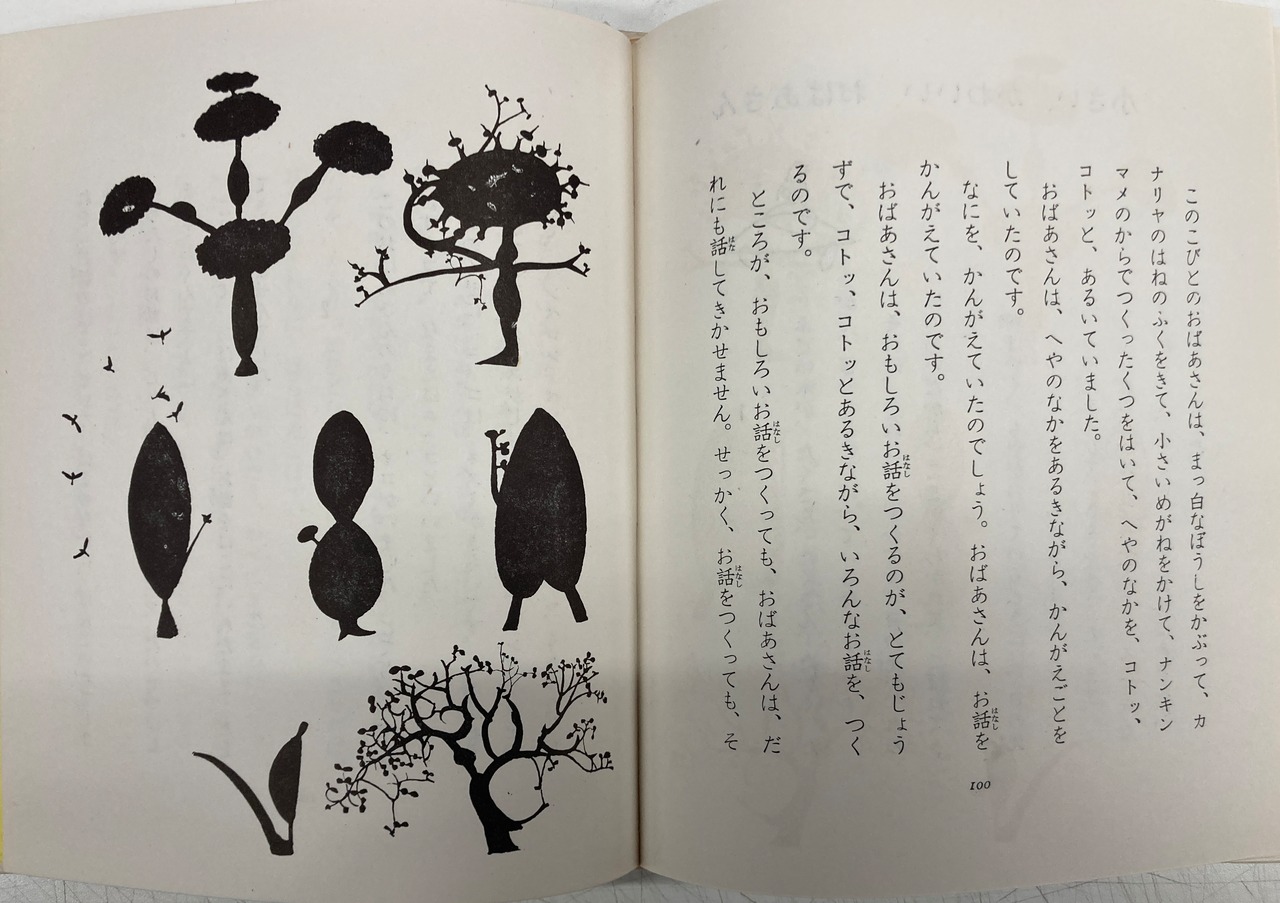 このこびとのおばあさんは、まっ白なぼうしをかぶって、カ
ナリヤのはねのふくをきて、小さいめがねをかけて、ナンキン
マメのからでつくったくつをはいて、へやのなかを、コトッ、
コトッと、あるいていました。
おばあさんは、へやのなかをあるきながら、かんがえごとを
していたのです。
なにを、かんがえていたのでしょう。おばあさんは、お話を
かんがえていたのです。
おばあさんは、おもしろいお話をつくるのが、とてもじょう
ずで、コトッ、コトッとあるきながら、いろんなお話を、つく
るのです。
ところが、おもしろいお話をつくっても、おばあさんは、だ
れにも話してきかせません。せっかく、お話をつくっても、そ
100